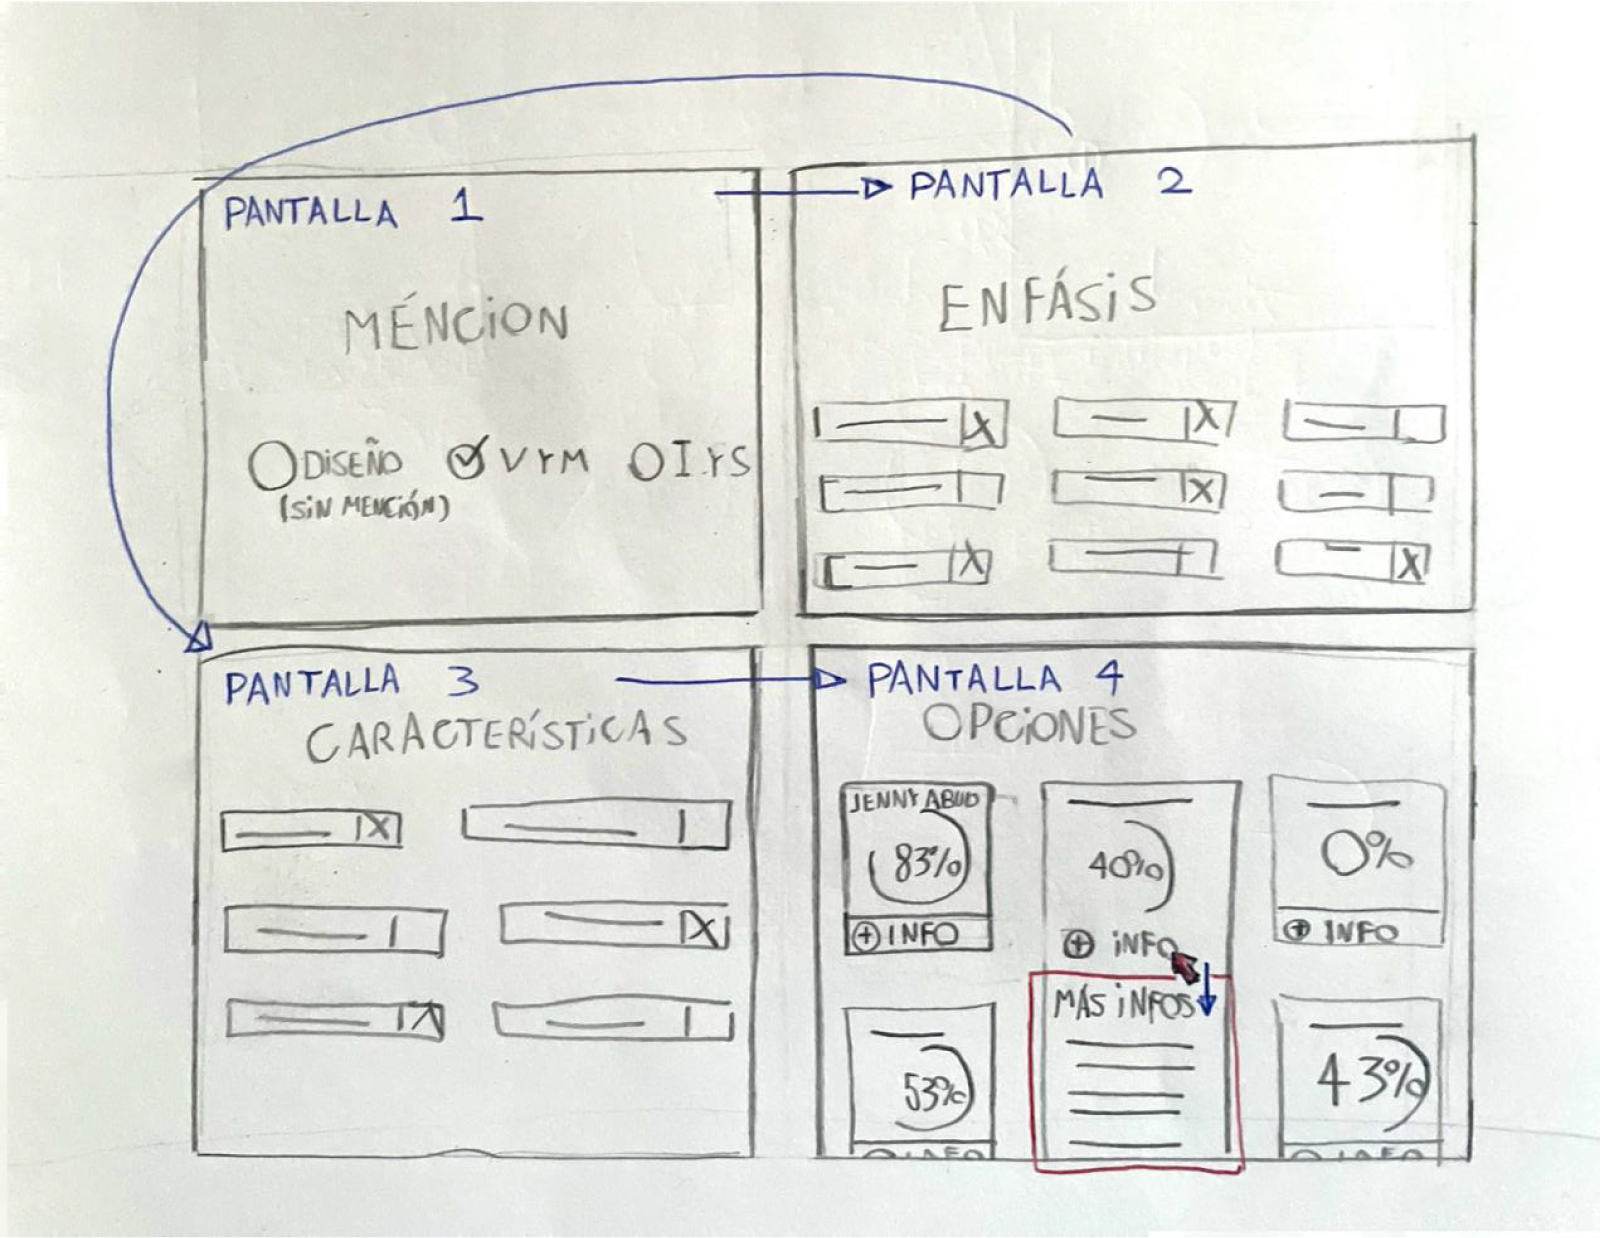 PANTALLA 1
MÉNCION
DISEÑO
VYM
I.YS
(SIN MENCIÓN)
PANTALLA 2
ENFÁSIS
X
X
X
X
X
PANTALLA 3
CARACTERÍSTICAS
X
X
X
PANTALLA 4
OPCIONES
JENNY ABUD
83%
+ INFO
40%
+ INFO
0%
+ INFO
MÁS INFOS
53%
INFO
43%
INFO